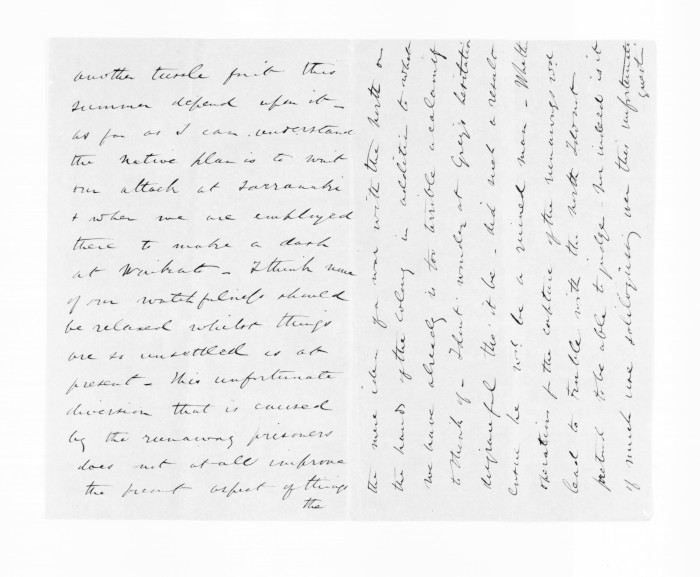 another tussle for it this
summer depend upon it -
as far as I can understand
the native plan is to wait
our attack at Tarranaki
& when we are employed
there to make a dash
at Waikato - I think none
of our watchfulness should
be relaxed whilst things
are so unsettled as at
present - This unfortunate
diversion that is caused
by the runaway prisoners
does not at all improve
the present aspect of things
the
the mere idea of a war with the North on
the hands of the colony in addition to what
we have already is too terrible a calamity
to think of - I dont wonder at Grey's hesitation
disgraceful tho' it be - did such a result
ensue he will be a ruined man - Whether
operations for the capture of the runaways wd
lead to trouble with the North I dont
pretend to be able to judge - nor indeed is it
of much use soliloquising over this unfortunate
quest